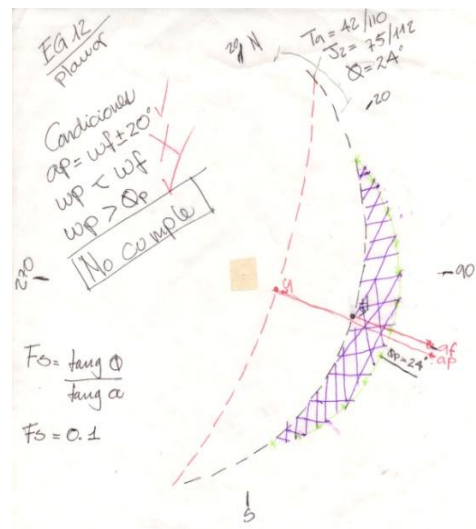 EG 12
planar
Condiciones
ap = wf ± 20°
wp < wf
wp > Øp
No cumple
N
Ta = 42/110
J2 = 75/112
Ø = 24°
20
270
90
af
ap
Øp = 24°
Fs = tang Ø
tang α
Fs = 0.1
S